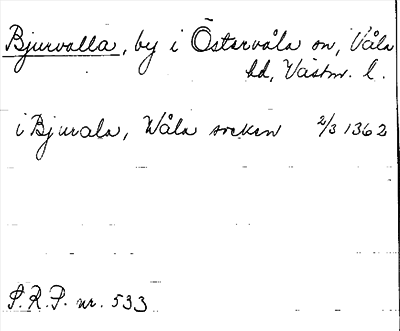 Bjurvalla, by i Östervåla sn, Våla
hd, Västm. l.
i Bjurala, Wåla soken 2/3 1362
S.R.P. nr. 533